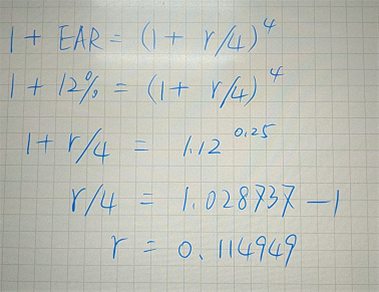 1 + EAR = (1 + r/4)^4
1 + 12% = (1 + r/4)^4
1 + r/4 = 1.12^0.25
r/4 = 1.028737 - 1
r = 0.114949